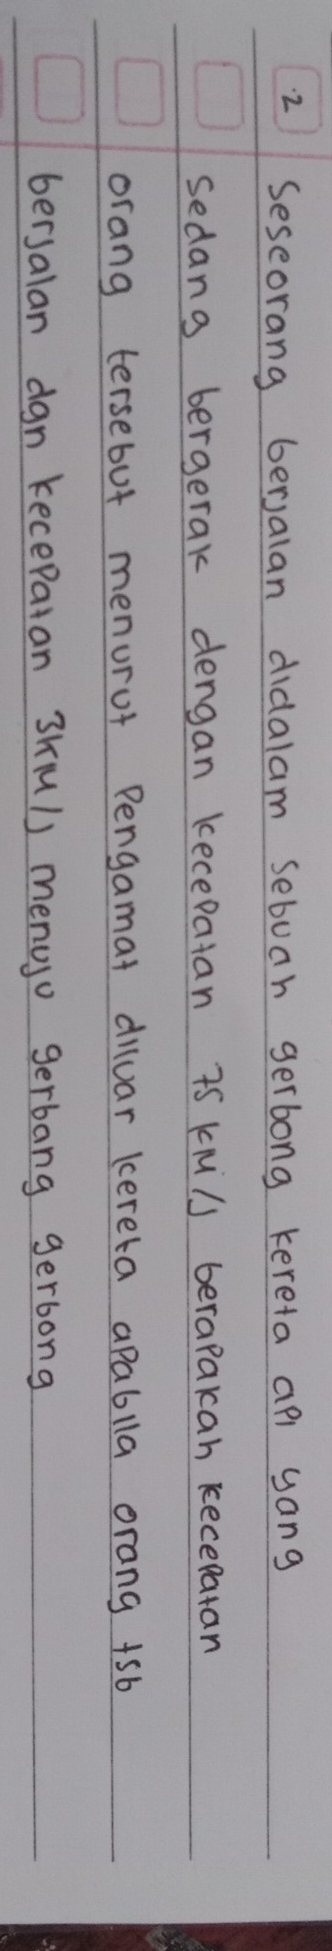 2 Seseorang berjalan didalam sebuah gerbong kereta api yang
sedang bergerak dengan kecepatan 75 KM/J berapakah kecepatan
orang tersebut menurut pengamat diluar kereta apabila orang tsb
berjalan dgn kecepatan 3KM/J menuju gerbang gerbong